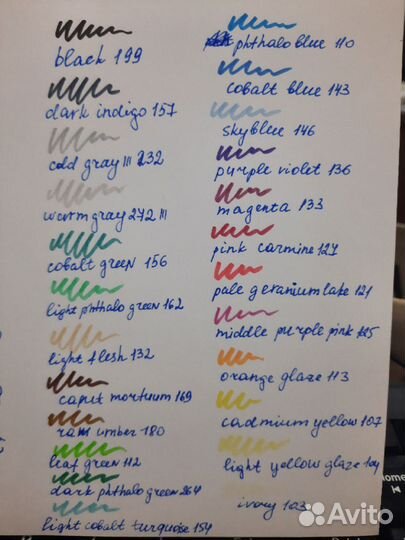 black 199
dark indigo 157
cold gray III 232
warm gray 272 III
cobalt green 156
light phthalo green 162
light flesh 132
caput mortuum 169
raw umber 180
leaf green 112
dark phthalo green 264
light cobalt turquoise 154
phthalo blue 110
cobalt blue 143
sky blue 146
purple violet 136
magenta 133
pink carmine 127
pale geranium lake 121
middle purple pink 125
orange glaze 113
cadmium yellow 107
light yellow glaze 104
ivory 103
Home
Avito